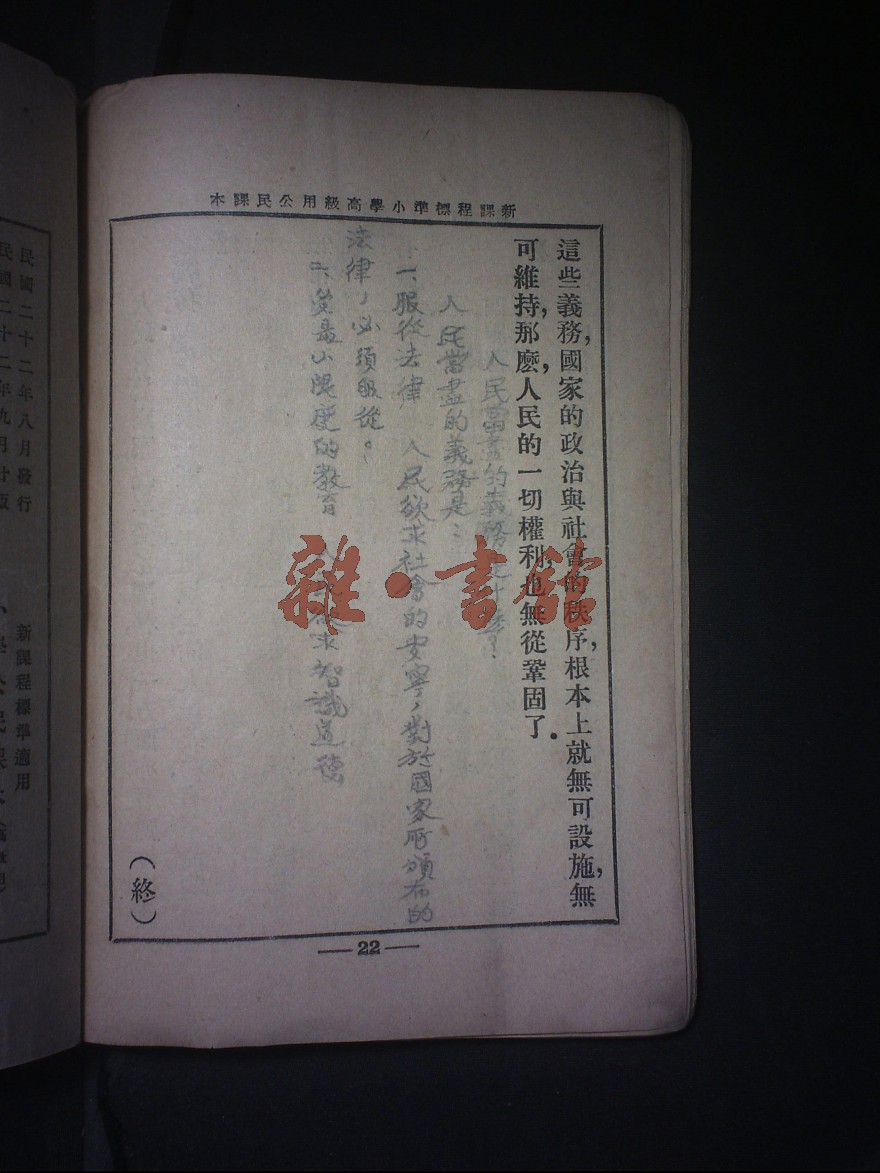 新課程標準小學高級用公民課本
這些義務，國家的政治與社會的秩序，根本上就無可設施，無
可維持，那麽，人民的一切權利，也無從鞏固了。
人民當盡的義務是什麽？
人民當盡的義務是：
一、服從法律 人民欲求社會的安寧，對於國家所頒布的
法律，必須服從。
二、受最小限度的教育 人民欲求智識道德
（終）
—22—
雜·書館
新課程標準適用
民國二十二年八月發行